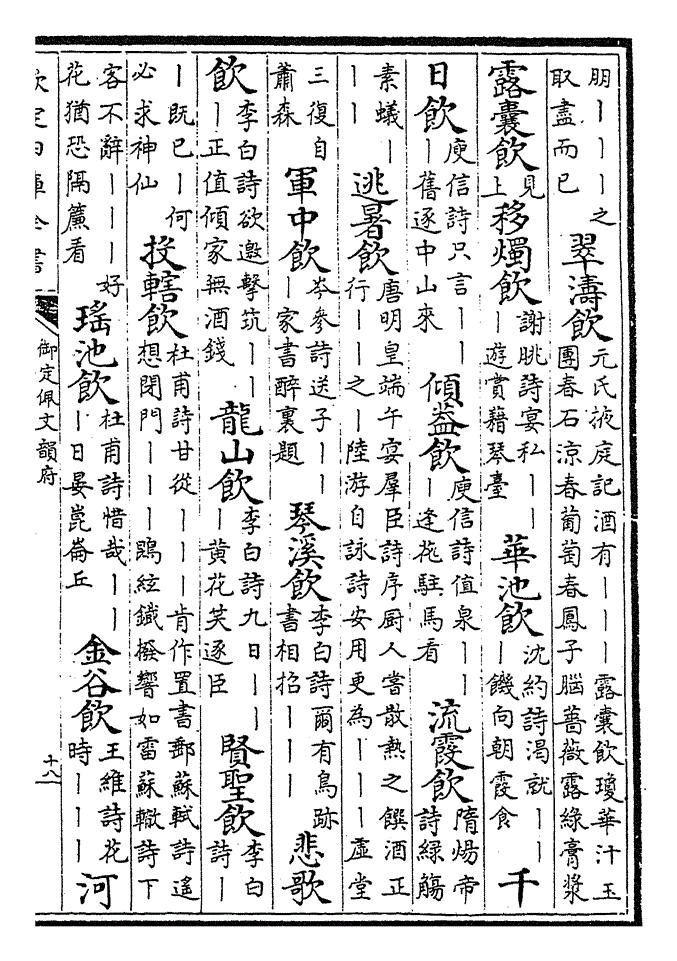 朋丨丨丨之取盡而已翠濤飲元氏掖庭記酒有丨丨丨露囊飲瓊華汁玉團春石涼春葡萄春鳳子腦薔薇露綠膏漿
露囊飲見上移燭飲謝眺詩宴私丨丨丨遊賞藉琴臺華池飲沈約詩渴就丨丨丨饑向朝霞食千
日飲庾信詩只言丨丨丨舊逐中山來傾蓋飲庾信詩值泉丨丨丨逢花駐馬看流霞飲隋煬帝詩綠觴
素蟻丨丨丨逃暑飲唐明皇端午宴羣臣詩序厨人嘗散熱之饌酒正行丨丨之丨陸游自詠詩安用更為丨丨丨虛堂
三復自蕭森軍中飲岑參詩送子丨丨丨家書醉裏題琴溪飲李白詩爾有鳥跡書相招丨丨丨悲歌
飲李白詩欲邀擊筑丨丨丨正值傾家無酒錢龍山飲李白詩九日丨丨丨黃花笑逐臣賢聖飲李白詩丨
丨既已丨何必求神仙投轄飲杜甫詩甘從丨丨丨肯作置書郵蘇軾詩遙想閉門丨丨丨鵾絃鐵撥響如雷蘇轍詩下
客不辭丨丨丨好花猶恐隔簾看瑤池飲杜甫詩惜哉丨丨丨日晏崑崙丘金谷飲王維詩花時丨丨丨河
欽定四庫全書
御定佩文韻府
十八